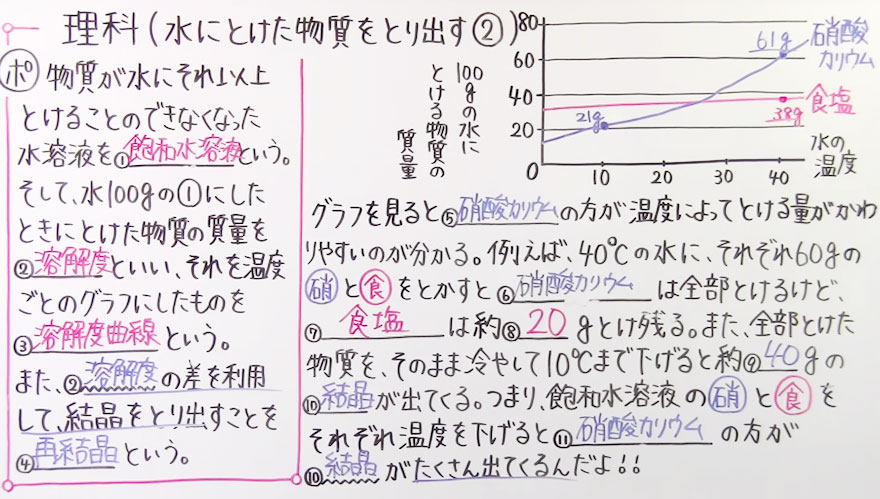 理科(水にとけた物質をとり出す②)
ポ 物質が水にそれ以上
とけることのできなくなった
水溶液を①飽和水溶液という。
そして、水100gの①にした
ときにとけた物質の質量を
②溶解度といい、それを温度
ごとのグラフにしたものを
③溶解度曲線という。
また、②溶解度の差を利用
して、結晶をとり出すことを
④再結晶という。
100gの水に
とける物質の
質量
80
60
40
20
0
10
20
30
40
水の
温度
61g
硝酸
カリウム
21g
食塩
38g
グラフを見ると⑤硝酸カリウムの方が温度によってとける量がかわ
りやすいのが分かる。例えば、40℃の水に、それぞれ60gの
硝と食をとかすと⑥硝酸カリウムは全部とけるけど、
⑦食塩は約⑧20gとけ残る。また、全部とけた
物質を、そのまま冷やして10℃まで下げると約⑨40gの
⑩結晶が出てくる。つまり、飽和水溶液の硝と食を
それぞれ温度を下げると⑪硝酸カリウムの方が
⑩結晶がたくさん出てくるんだよ!!